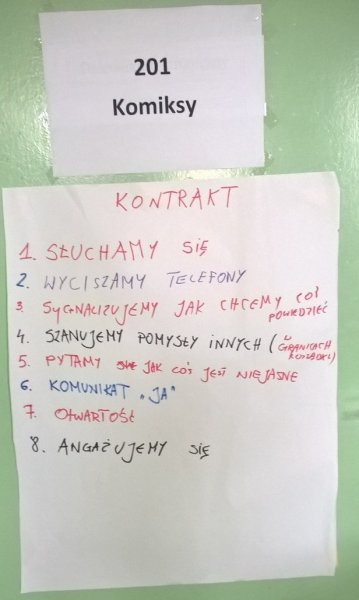 201
Komiksy
KONTRAKT
1. SŁUCHAMY SIĘ
2. WYCISZAMY TELEFONY
3. SYGNALIZUJEMY JAK CHCEMY COŚ
POWIEDZIEĆ
4. SZANUJEMY POMYSŁY INNYCH (W
GRANICACH
ROZSĄDKU)
5. PYTAMY JAK COŚ JEST NIEJASNE
6. KOMUNIKAT „JA"
7. OTWARTOŚĆ
8. ANGAŻUJEMY SIĘ